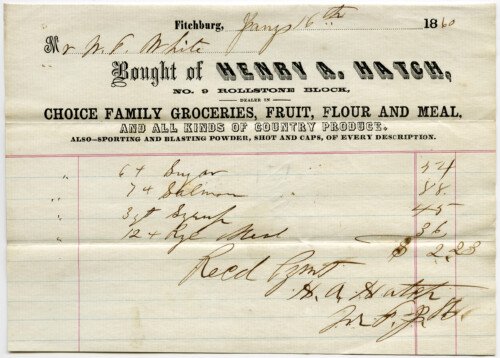 Fitchburg, Jany 16th 1860
Mr W. F. White
Bought of HENRY A. HATCH,
NO. 9 ROLLSTONE BLOCK,
DEALER IN
CHOICE FAMILY GROCERIES, FRUIT, FLOUR AND MEAL,
AND ALL KINDS OF COUNTRY PRODUCE.
ALSO—SPORTING AND BLASTING POWDER, SHOT AND CAPS, OF EVERY DESCRIPTION.
" 6 # Sugar 54
" 7 # Salmon " 88
" 3 qt Syrup 45
" 12 # Rye Meal 36
$ 2,23
Recd Pymt
H. A. Hatch